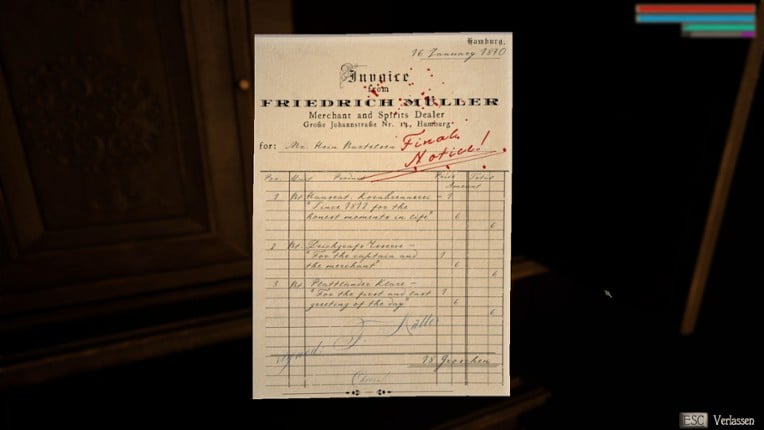 Hamburg,
16 January 1810
Invoice
from
FRIEDRICH MÜLLER
Merchant and Spirits Dealer
Große Johannstraße Nr. 14, Hamburg
for: Mr. Hein
Final
Notice!
Product Price Total
Amount
1 Hanseat. Kornbrennerei – 1
"Since 1812 for the
honest moments in life" 6
6
2 Deichgraf's Reserve –
"For the captain and 1
the merchant" 6
6
3 Plattlander Klare –
"For the first and last 1
greeting of the day" 6
6
signed: F. Müller
18 Groschen
ESC Verlassen